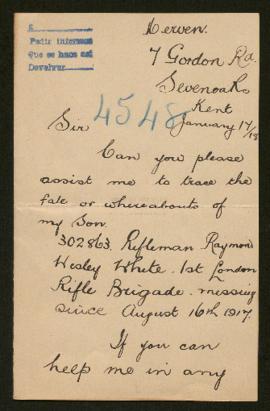 A
Pedir informes
Que se haga así
Devolver
Merven.
7 Gordon Rd.
Sevenoaks
Kent
4548
Sir
January 17/18
Can you please
assist me to trace the
fate or whereabouts of
my Son.
302863. Rifleman Raymond
Wesley White. 1st London
Rifle Brigade. missing
since August 16th 1917.
If you can
help me in any